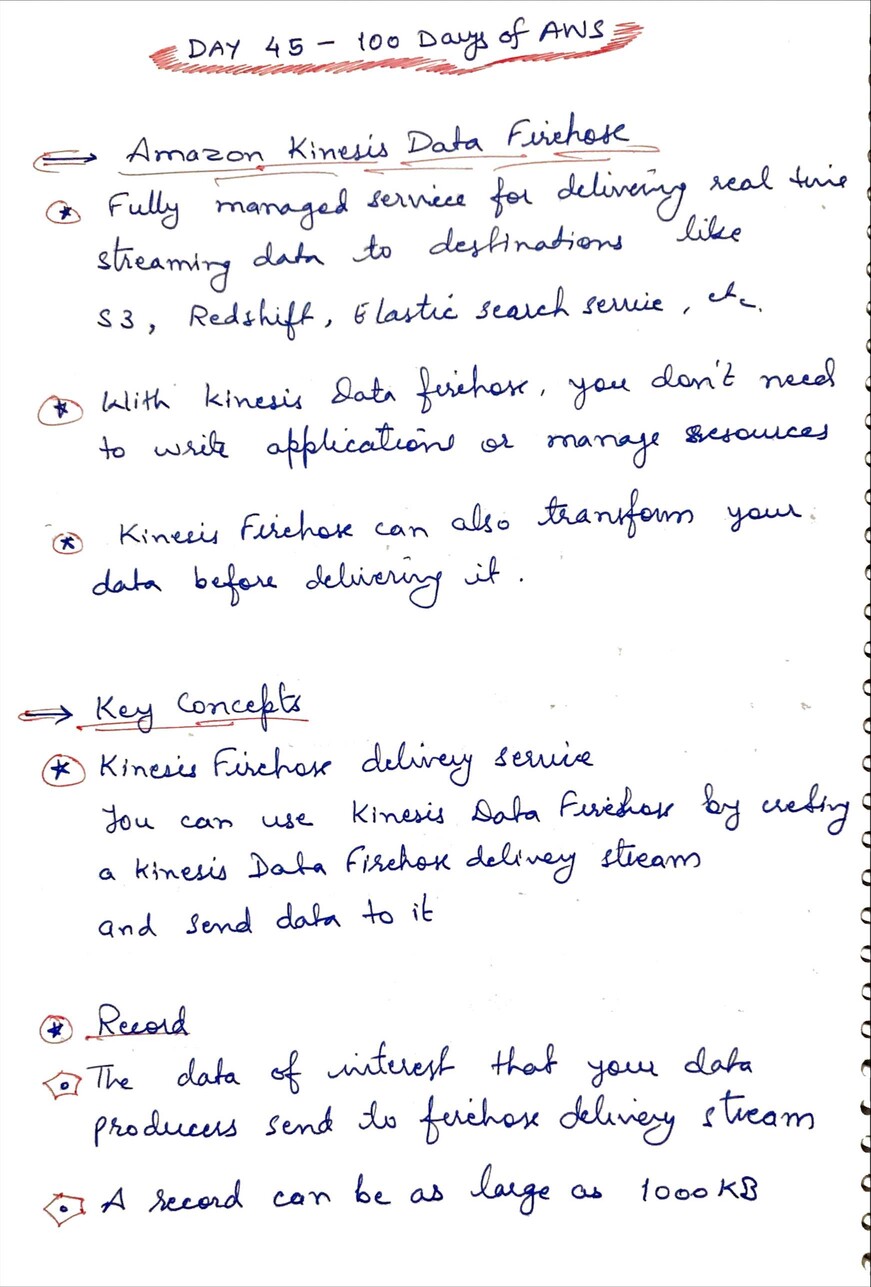 DAY 45 - 100 Days of AWS
⇒ Amazon Kinesis Data Firehose
* Fully managed service for delivering real time
streaming data to destinations like
S3, Redshift, Elastic search service, etc.
* With Kinesis Data firehose, you don't need
to write applications or manage resources
* Kinesis Firehose can also transform your
data before delivering it.
⇒ Key Concepts
* Kinesis Firehose delivery service
You can use Kinesis Data Firehose by creating
a Kinesis Data Firehose delivery stream
and send data to it
* Record
The data of interest that your data
producers send to firehose delivery stream
A record can be as large as 1000 KB